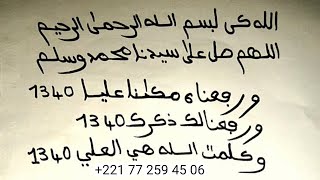 الله كى لبسم الله الرحمن الرحيم
اللهم صل على سيدنا محمد وسلم
ورفعناه مكانا عليا 1340
ورفعنا لك ذكرك 1340
وكلمت الله هي العلي 1340
+221 77 259 45 06